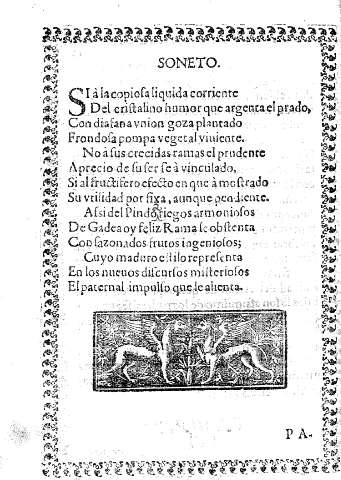 SONETO.
SI à la copiosa liquida corriente
Del cristalino humor que argenta el prado,
Con diafana vnion goza plantado
Frondosa pompa vegetal viuiente.
No à sus crecidas ramas el prudente
Aprecio de su ser se à vinculado,
Si al fructifero efecto en que à mostrado
Su vtilidad por fixa, aunque pendiente.
Assi del Pindo riegos armoniosos
De Gadea oy feliz Rama se obstenta
Con sazonados frutos ingeniosos;
Cuyo maduro estilo representa
En los nueuos discursos misteriosos
El paternal impulso que le alienta.
PA-